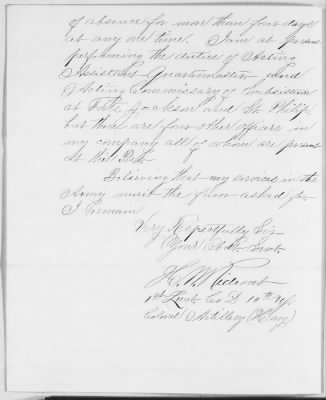 of absence for more than four days
at any one time. I am at present
performing the duties of Acting
Assistant Quartermaster and
Acting Commissary of Subsistence
at Forts Jackson and St. Philip.
but there are four other officers in
my company all of whom are present
at this Post.
Believing that my services in the
Army merit the favor asked for
I remain
Very Respectfully Sir
Your Obdt. Servt.
1st Lieut. Co D 10th Regt.
Colored Artillery (Heavy)